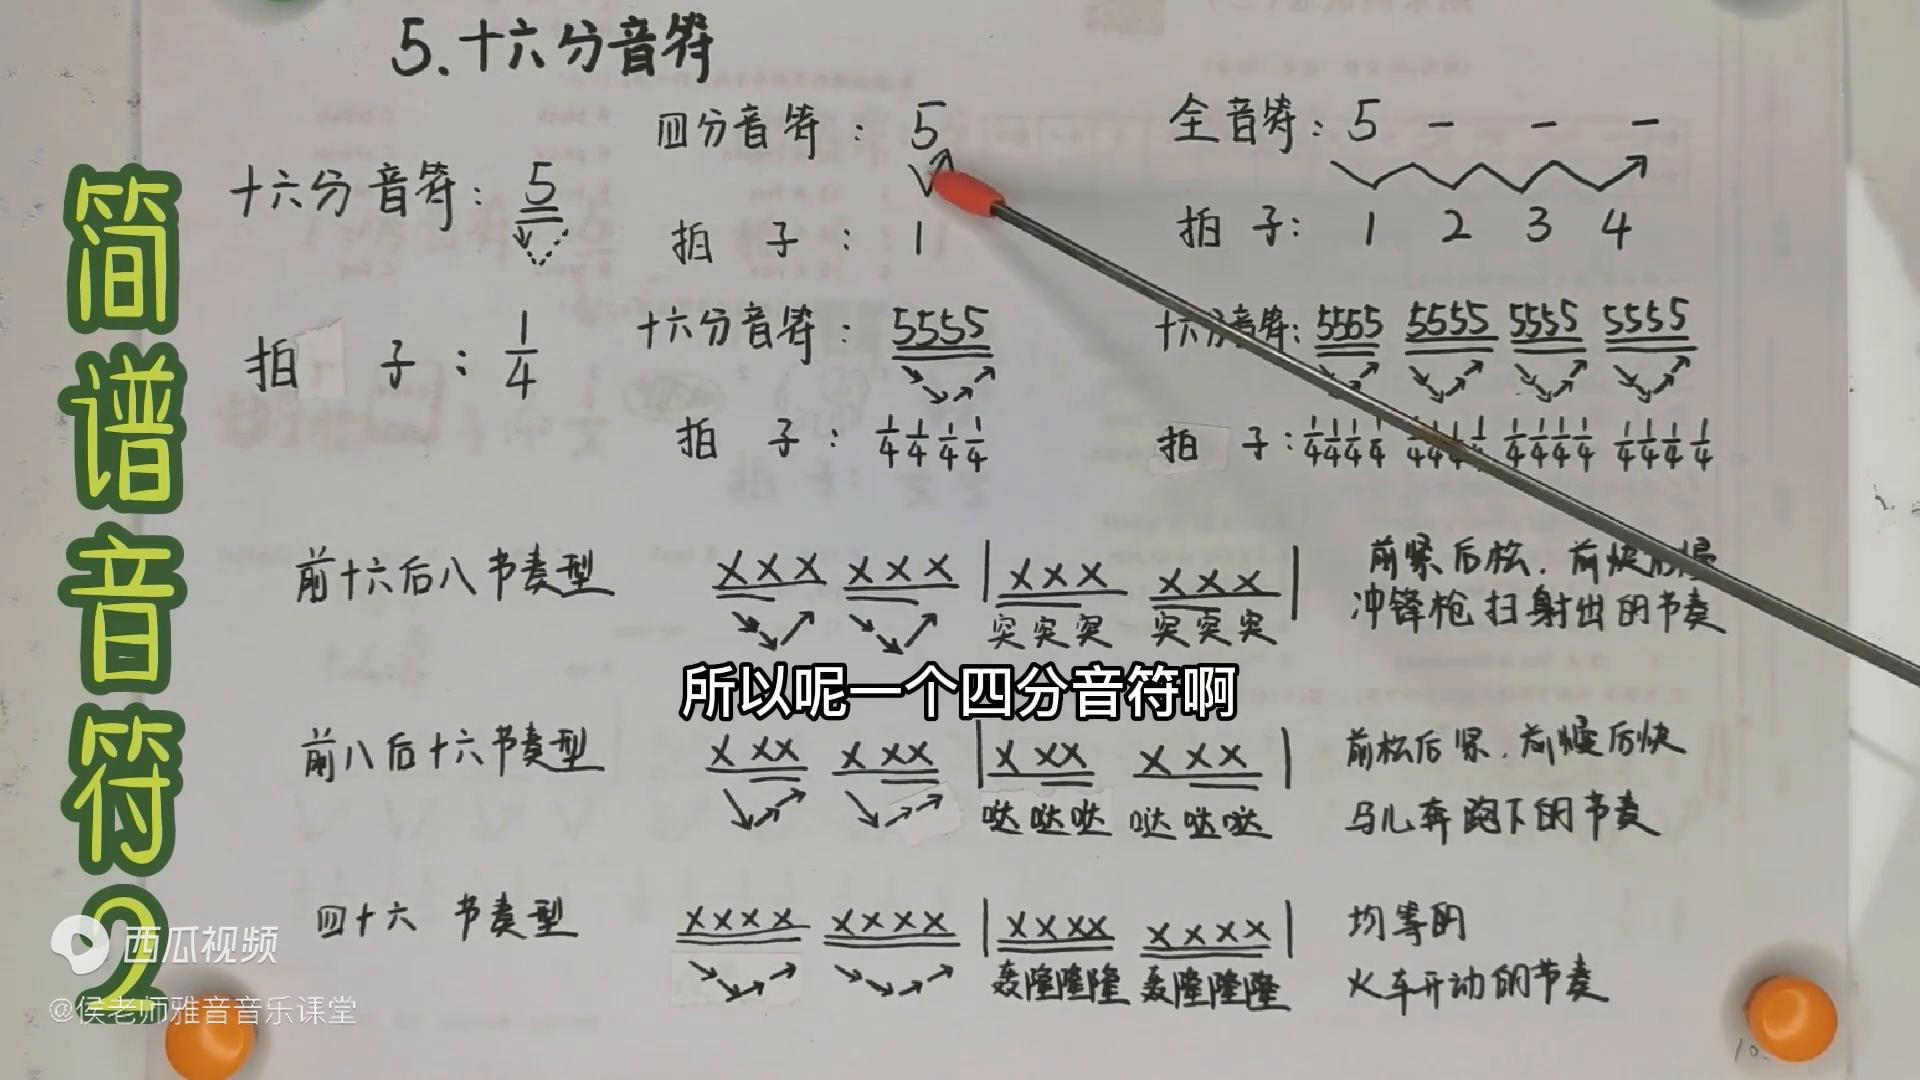 5.十六分音符
四分音符： 5
全音符：5 - - -
十六分音符：5
拍子：1
拍子：1 2 3 4
十六分音符：5555
十六分音符：5555 5555 5555 5555
拍子：1/4
拍子：1/4 1/4 1/4 1/4
拍子：1/4 1/4 1/4 1/4 1/4 1/4 1/4 1/4 1/4 1/4 1/4 1/4
前十六后八节奏型 XXX XXX | XXX XXX |
突突突 突突突
前紧后松．前快后慢
冲锋枪扫射出的节奏
所以呢一个四分音符啊
前八后十六节奏型 X XX X XX | X XX X XX |
哒哒哒 哒哒哒
前松后紧．前慢后快
马儿奔跑下的节奏
四十六节奏型 XXXX XXXX | XXXX XXXX |
轰隆隆隆 轰隆隆隆
均等的
火车开动的节奏
简谱音符2
西瓜视频
@侯老师雅音音乐课堂